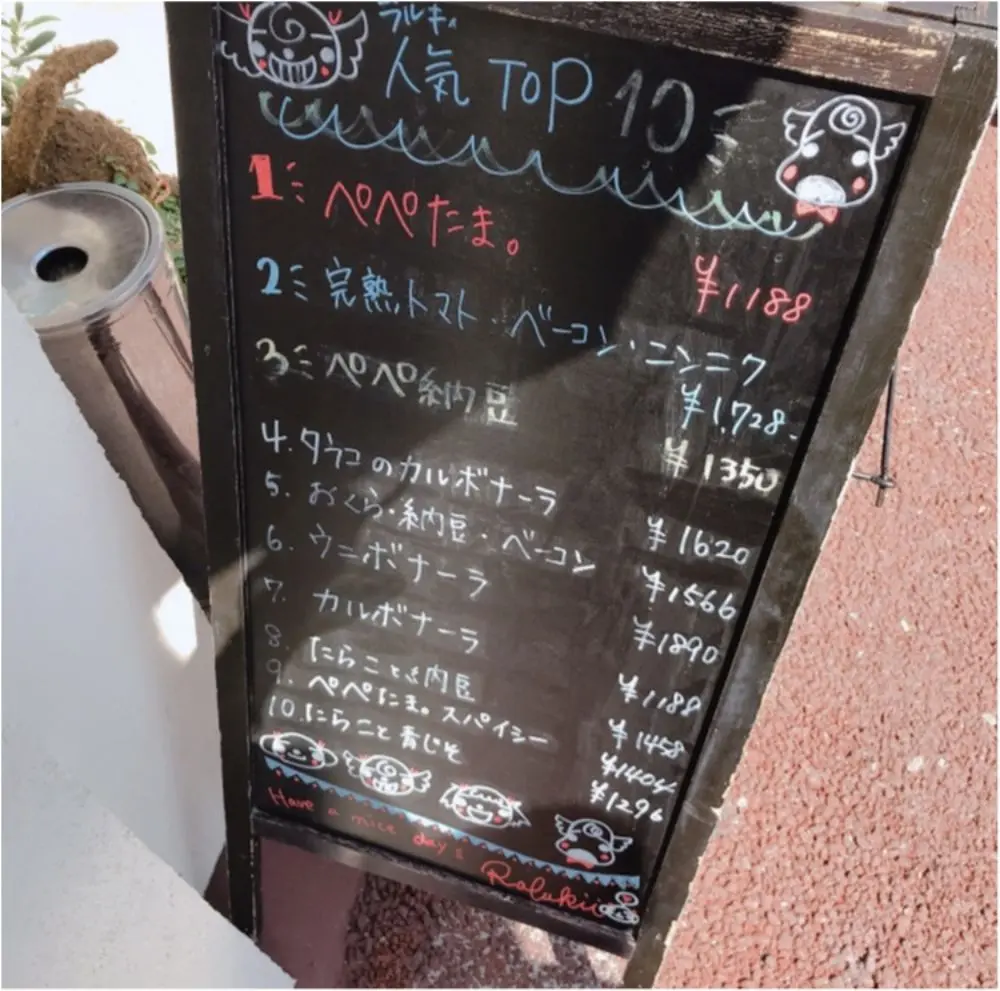 ラルキィ
人気 TOP 10
1 ペペたま。
¥1188
2 完熟トマト・ベーコン・ニンニク
¥1,728-
3 ペペ納豆
¥1350
4. タラコのカルボナーラ ¥1620
5. おくら・納豆・ベーコン ¥1566
6. ウニボナーラ ¥1890
7. カルボナーラ ¥1188
8. たらこと納豆 ¥1458
9. ペペたま。スパイシー ¥1404
10. たらこと青じそ ¥1296
Have a nice day
Ralukii